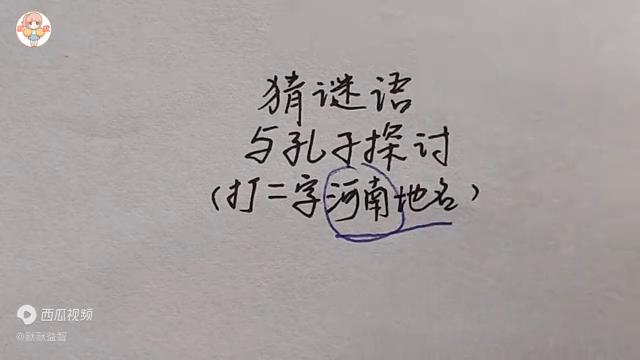 猜谜语
与孔子探讨
(打二字河南地名)
西瓜视频
@默默益智